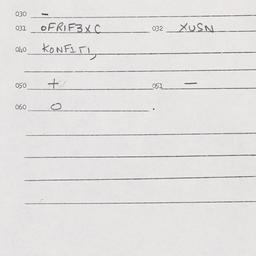 030 –
031 OFRIF3XC 032 XUSN
040 KONFITI,
050 + 051 –
060 O .